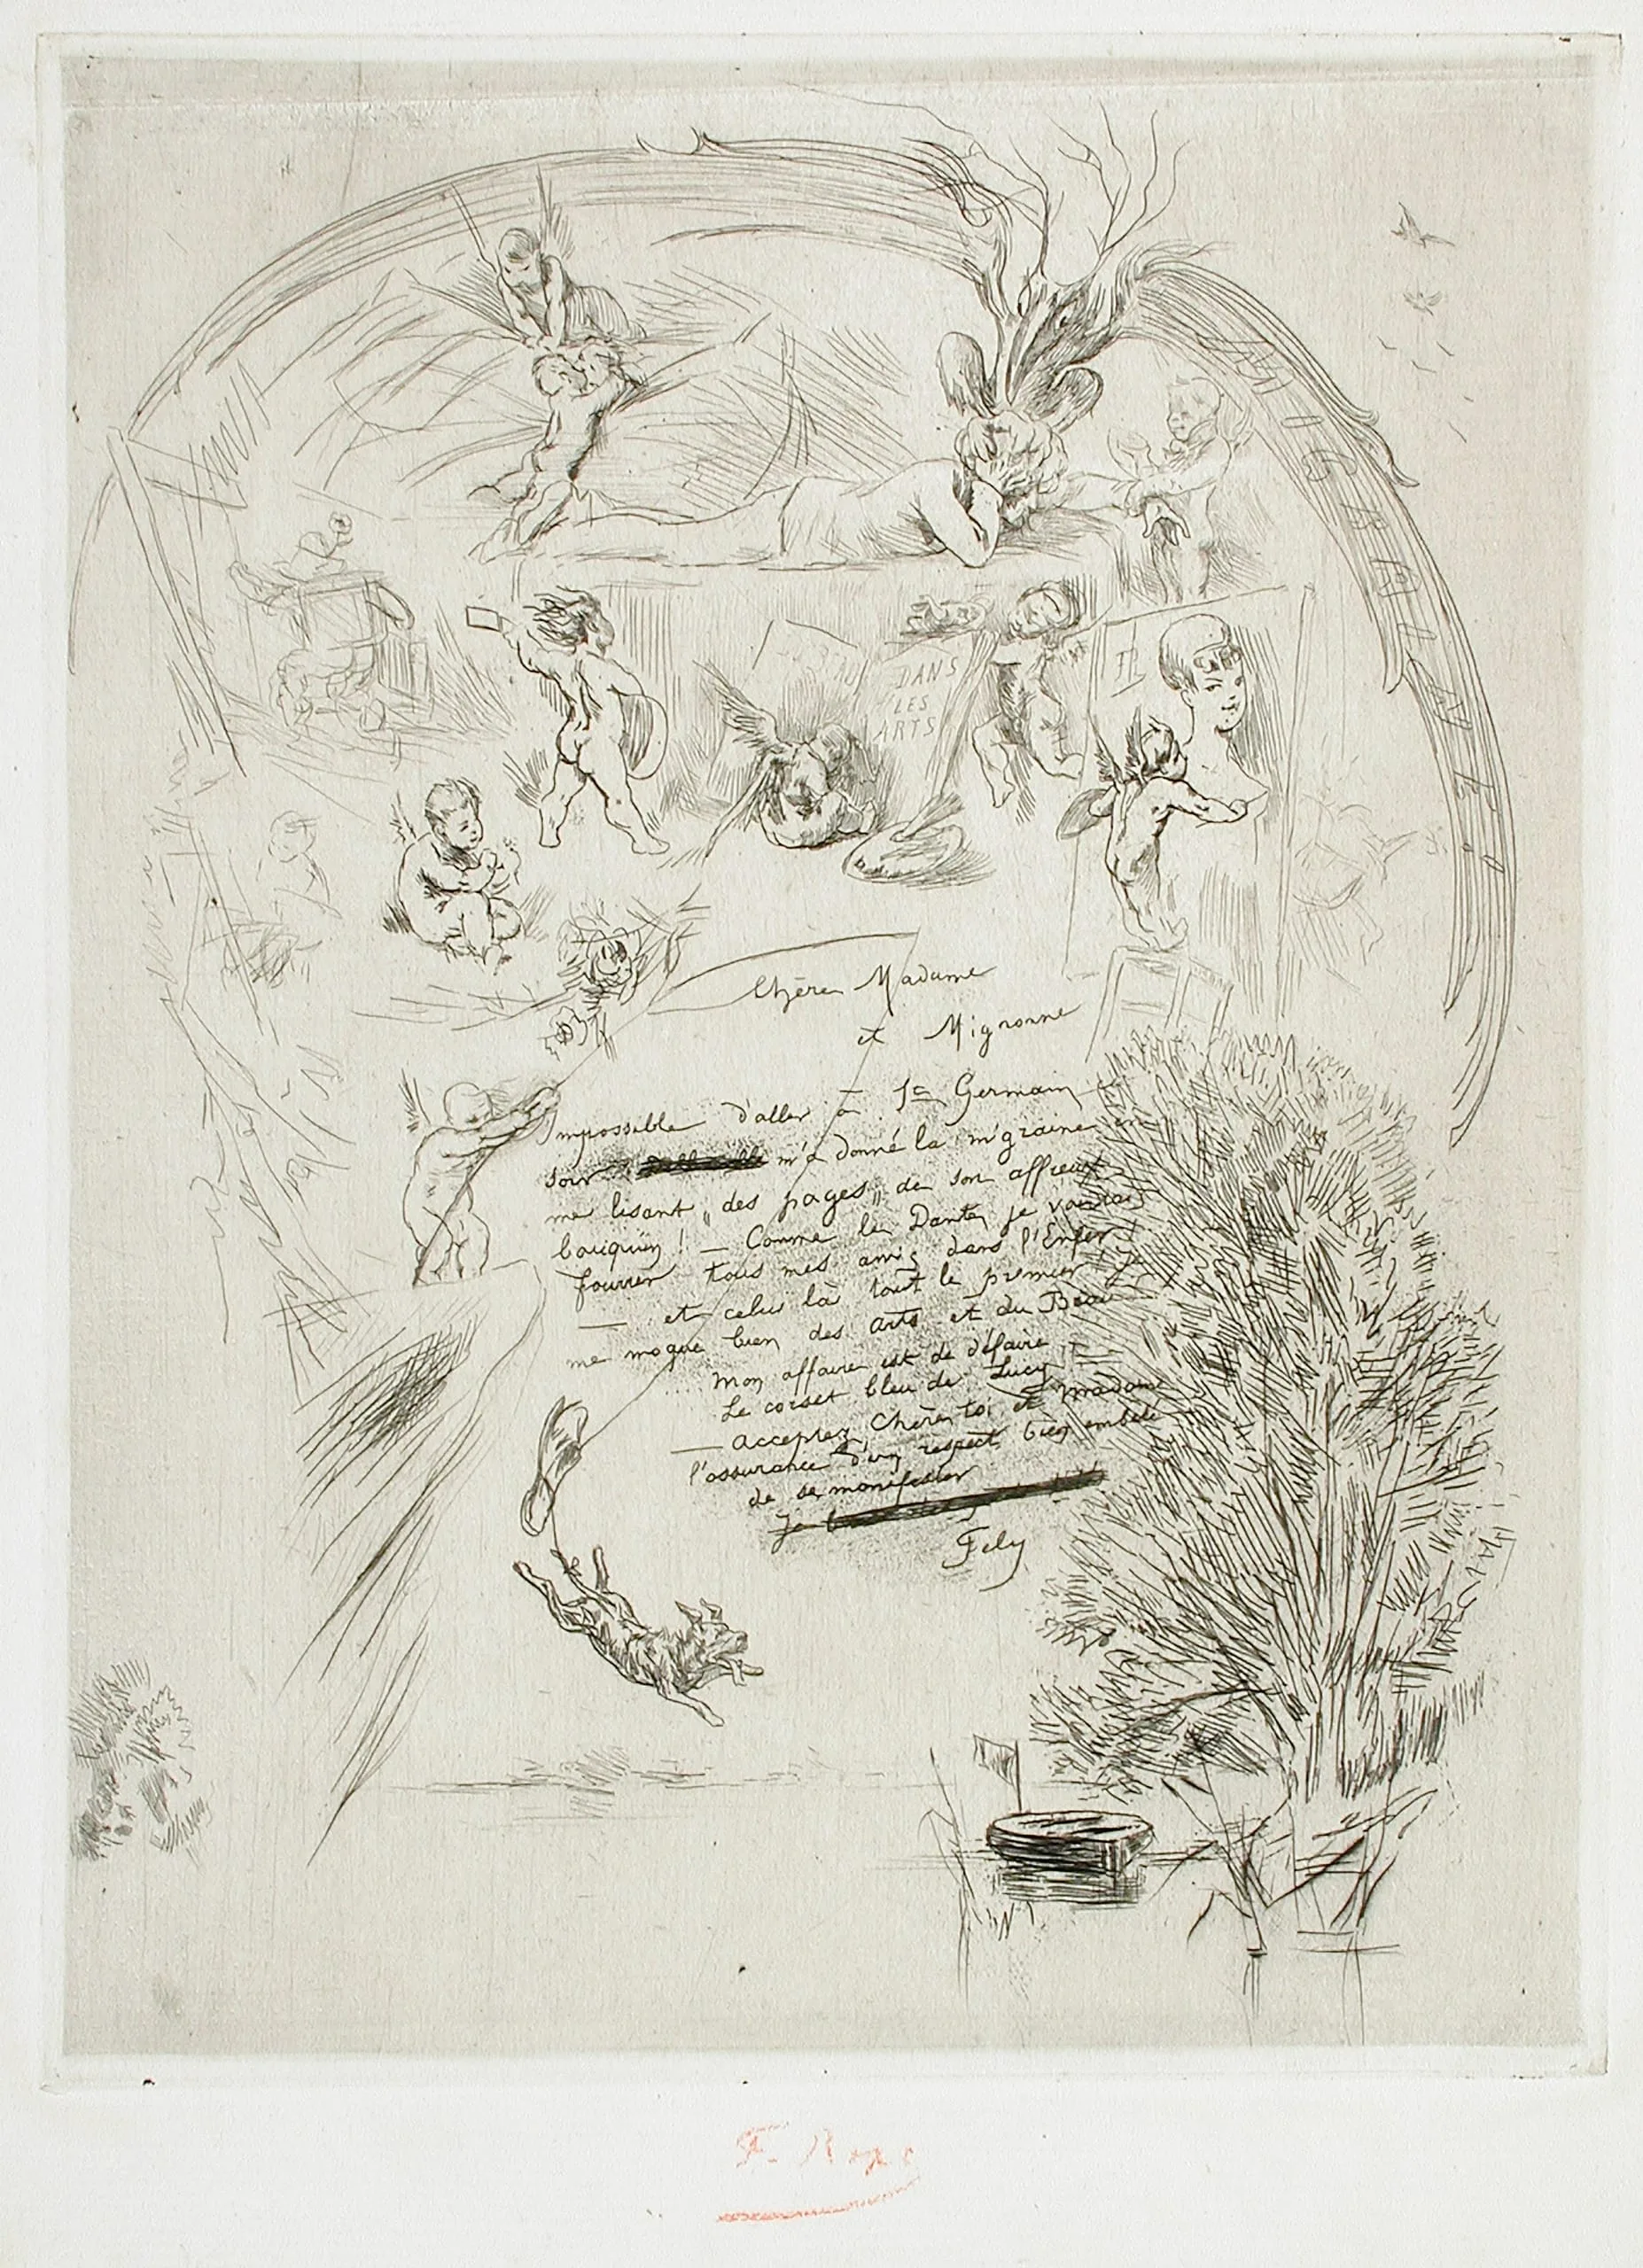 BEAU
DANS
LES
ARTS
Chère Madame
et Mignonne
Impossible d'aller à St Germain
soir m'a donné la m'graine en
me lisant „ des pages „ de son affreux
bouquin ! — Comme le Dante, je voudrais
fourrer tous mes amis dans l'Enfer
— et celui là tout le premier Je
me moque bien des arts et du Beau
.... mon affaire est de défaire
Le corset bleu de Lucy
— acceptez, Chère toi et madame
l'assurance d'un respect bien embêté
de se manifester
Je
Fély
F. Rops